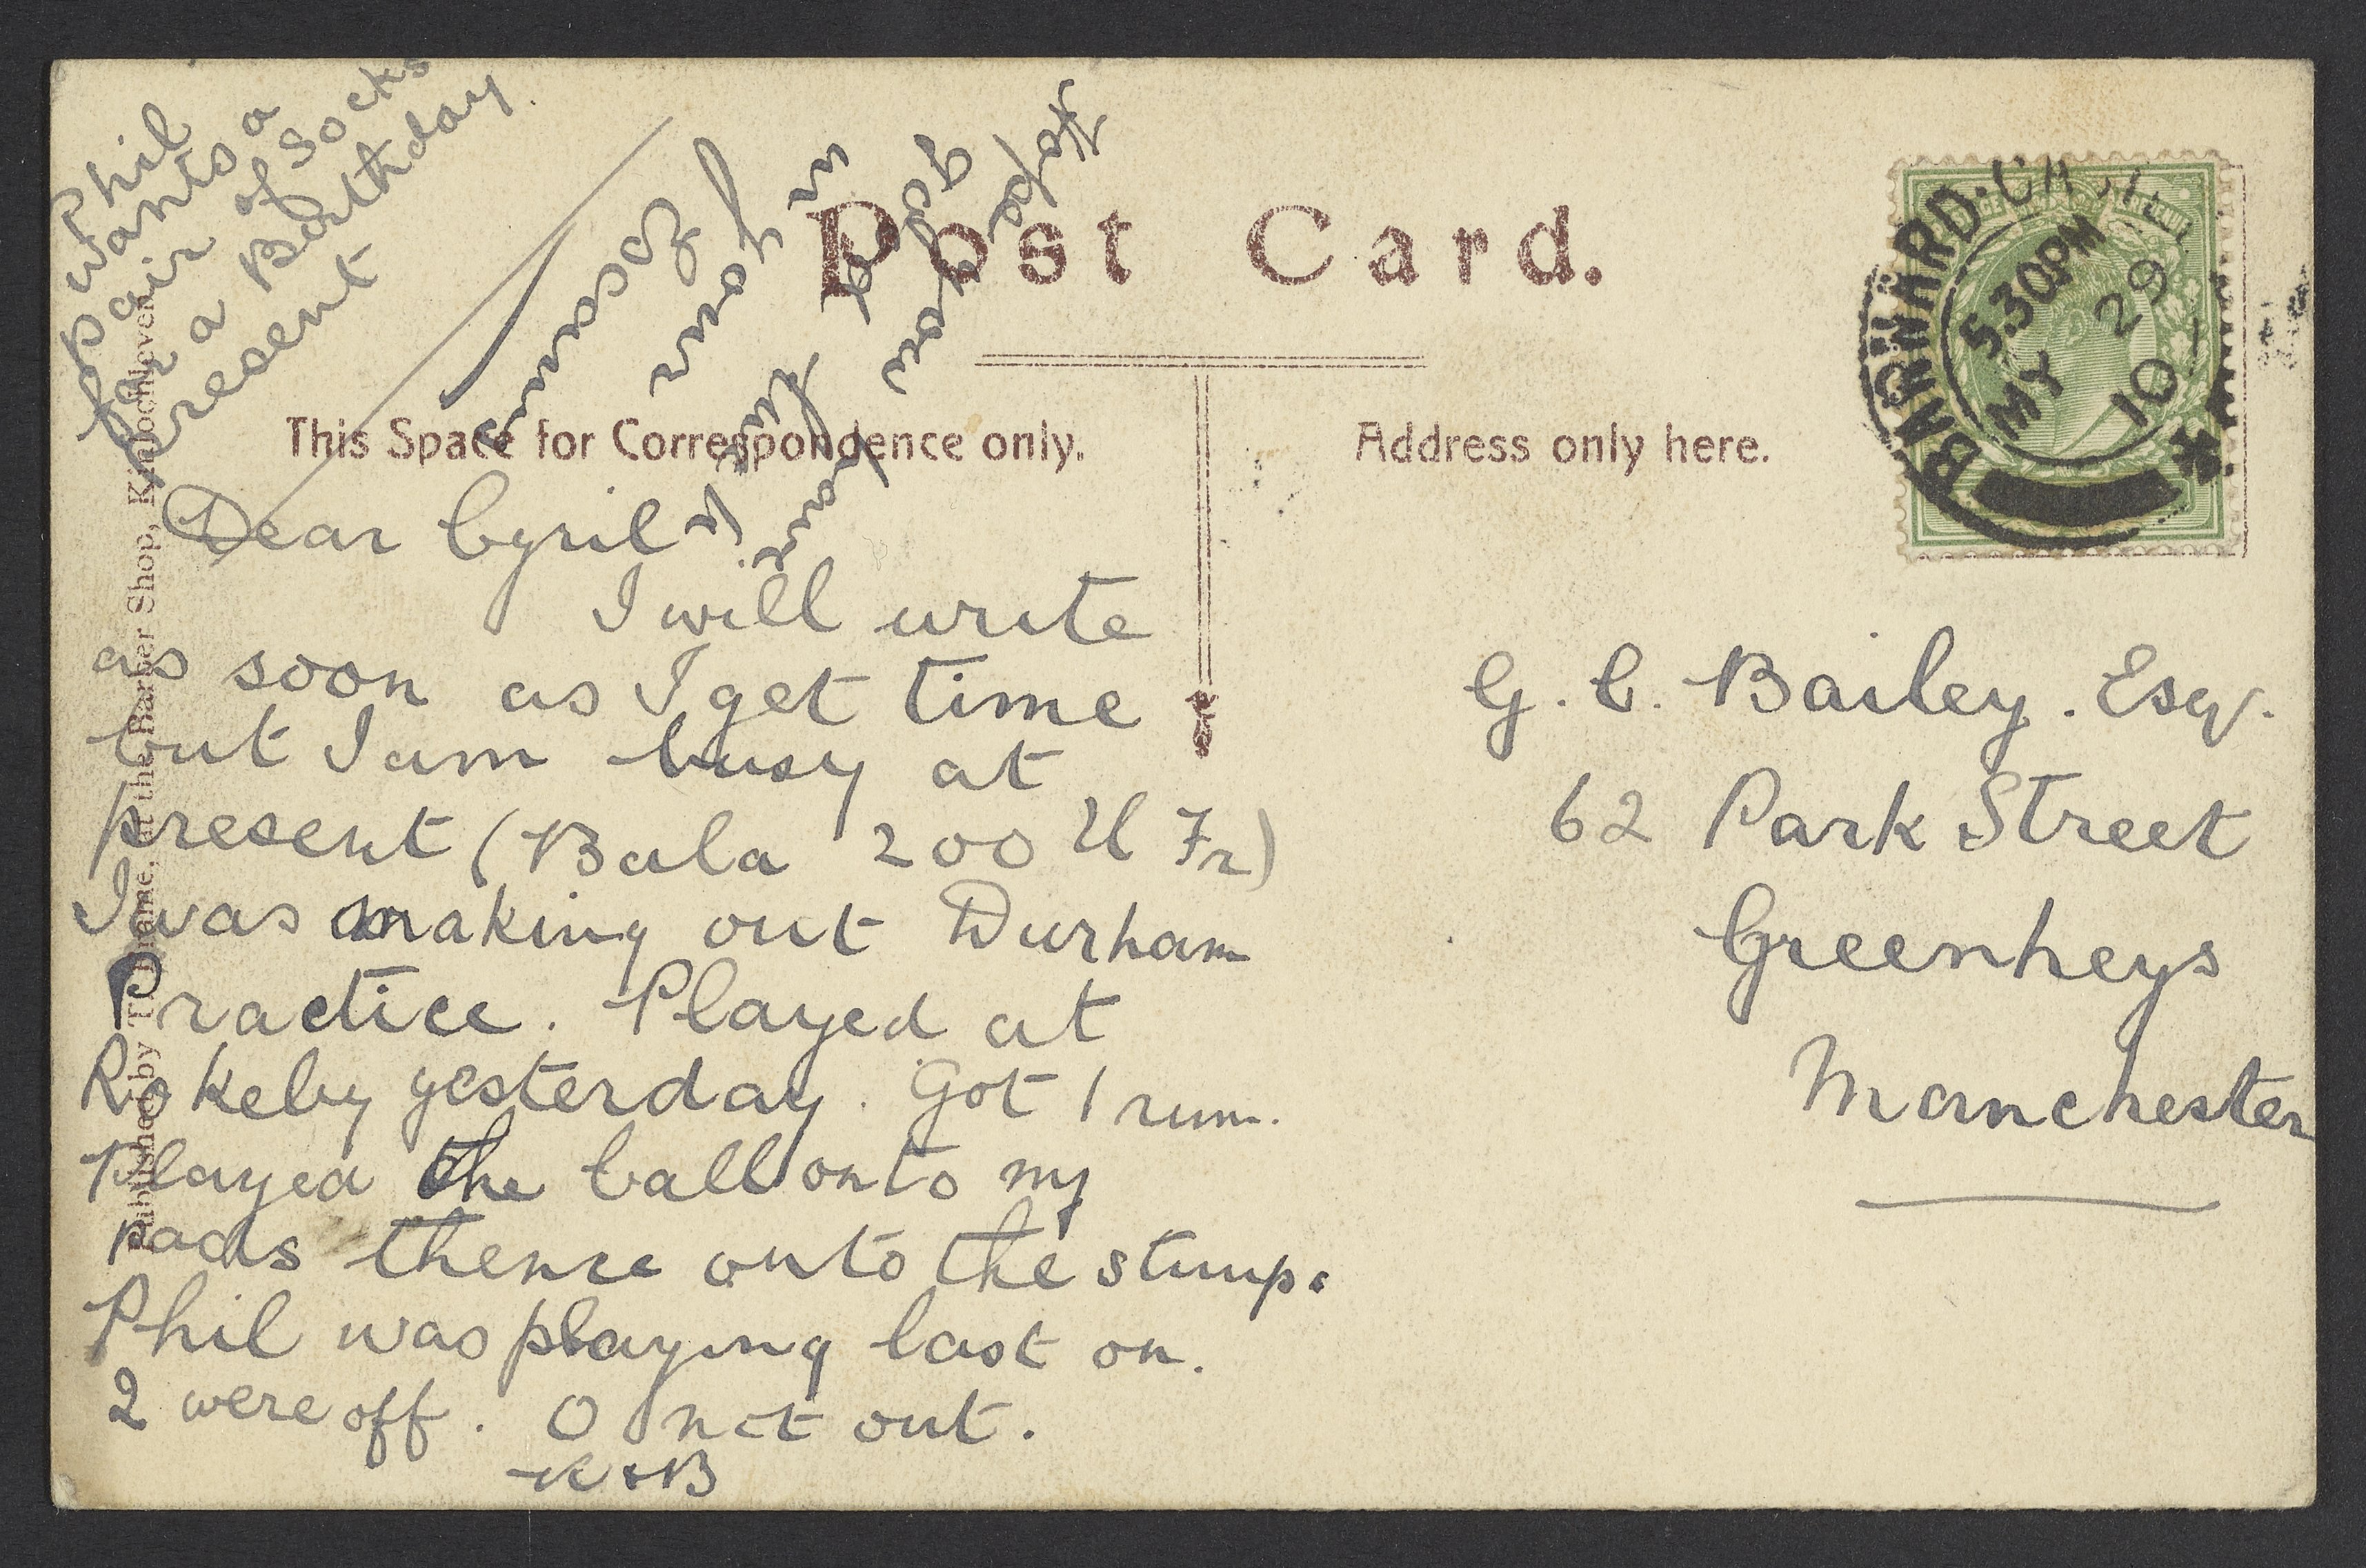 Phil
wants a
pair of socks
for a Birthday
present
Hope you have
god
luck
in your
Exams
Post Card.
This Space for Correspondence only.
Address only here.
BARNARD·CASTLE
5.30PM
MY 29
10
Dear Cyril
I will write
as soon as I get time
but I am busy at
present (Bala 200 U Fr)
I was making out Durham
Practice. Played at
Rokeby yesterday. Got 1 run.
Played the ball onto my
pads thence onto the stumps
Phil was playing last on.
2 were off. O not out.
G. C. Bailey. Esq.
62 Park Street
Greenheys
Manchester
Published by The Frame, at the Barber Shop, Kinlochleven